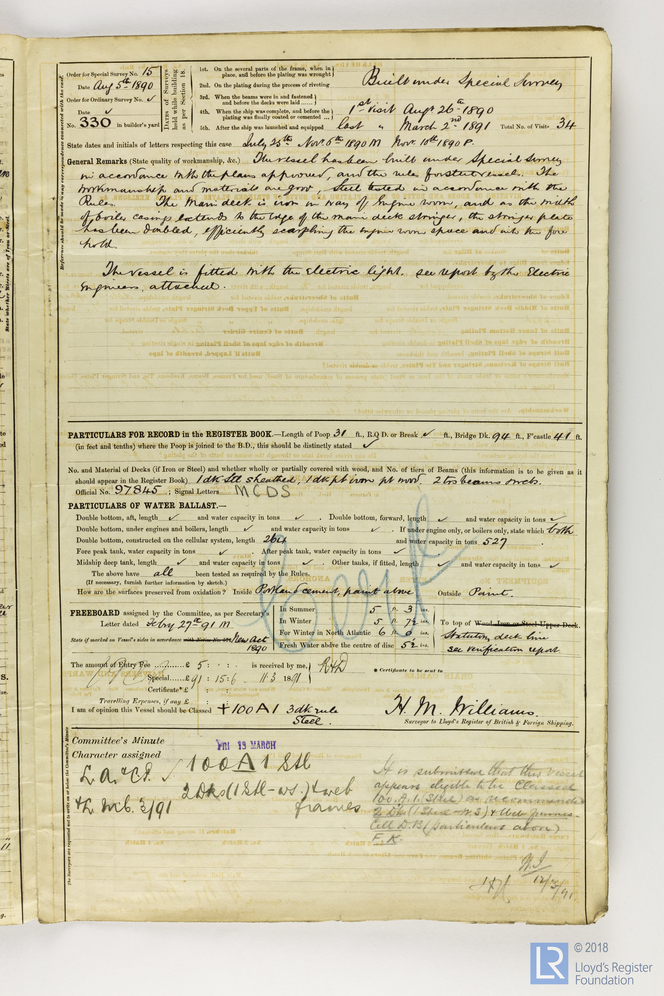 Order for Special Survey No. 15
Date Aug 5th 1890
Order for Ordinary Survey No. ✓
Date ✓
No. 330 in builder's yard
Dates of Surveys held while building as per Section 18.
1st. On the several parts of the frame, when in place, and before the plating was wrought
2nd. On the plating during the process of riveting
3rd. When the beams were in and fastened and before the decks were laid
4th. When the ship was complete, and before the plating was finally coated or cemented
5th. After the ship was launched and equipped
Built under Special Survey
1st Visit Augt 26th 1890
Last " March 2nd 1891 Total No. of Visits 34
State dates and initials of letters respecting this case July 25th Nov. 6th 1890 M Nov. 10th 1890 P.
General Remarks (State quality of workmanship, &c.) The vessel has been built under Special Survey
in accordance with the plans approved, and the rules for steel vessels. The
workmanship and materials are good, Steel tested in accordance with the
Rules. The Main deck is iron in way of Engine room, and as the width
of boiler casing extends to the edge of the main deck stringer, the stringer plate
has been doubled, efficiently scarphing the engine room space and into the fore
hold.
The vessel is fitted with the Electric light. see report by the Electric
Engineers, attached.
PARTICULARS FOR RECORD in the REGISTER BOOK.—Length of Poop 31 ft., R.Q D. or Break ✓ ft., Bridge Dk. 94 ft., F'castle 41 ft.
(in feet and tenths) where the Poop is joined to the B.D., this should be distinctly stated ✓
No. and Material of Decks (if Iron or Steel) and whether wholly or partially covered with wood, and No. of tiers of Beams (this information is to be given as it
should appear in the Register Book) 1 dk Stl sheathed, 1 dk pt iron pt wood. 2 trs beams
Official No. 97845 ; Signal Letters MCDS
PARTICULARS OF WATER BALLAST.—
Double bottom, aft, length ✓ and water capacity in tons ✓ . Double bottom, forward, length ✓ and water capacity in tons ✓
Double bottom, under engines and boilers, length ✓ and water capacity in tons ✓ . If under engine only, or boilers only, state which both
Double bottom, constructed on the cellular system, length 264 and water capacity in tons 527
Fore peak tank, water capacity in tons ✓ . After peak tank, water capacity in tons ✓
Midship deep tank, length ✓ and water capacity in tons ✓ . Other tanks, if fitted, length ✓ and water capacity in tons ✓
The above have all been tested as required by the Rules.
(If necessary, furnish further information by sketch.)
How are the surfaces preserved from oxidation? Inside Portland cement, paint above Outside Paint.
FREEBOARD assigned by the Committee, as per Secretary's
Letter dated Feby 27th 91 M.
State if marked on Vessel's sides in accordance New Act 1890
In Summer 5 ft. 3 ins.
In Winter 5 ft. 7½ ins.
For Winter in North Atlantic 6 ft. 0 ins.
Fresh Water above the centre of disc 5½ ins.
To top of Wood, Iron or Steel Upper Deck.
Statutory deck line
see verification report
The amount of Entry Fee £ 5 : : is received by me, RHD
Special £ 91 : 15 : 6 11 3 1891
Certificate* £ : :
* Certificate to be sent to
Travelling Expenses, if any £
I am of opinion this Vessel should be Classed +100A1 3 dk rule
Steel.
H. M. Williams.
Surveyor to Lloyd's Register of British & Foreign Shipping.
Committee's Minute FRI 13 MARCH
Character assigned 100A1 Stl
2 Dks (1 Stl - ws.) & web
frames
It is submitted that this Vessel
appears eligible to be Classed
100.A.1. (Steel) as recommended
2 Dks (1 Steel W.S) & Web frames
Cell D.B. (particulars above)
F.K.
12/3/91
LR
© 2018
Lloyd's Register
Foundation